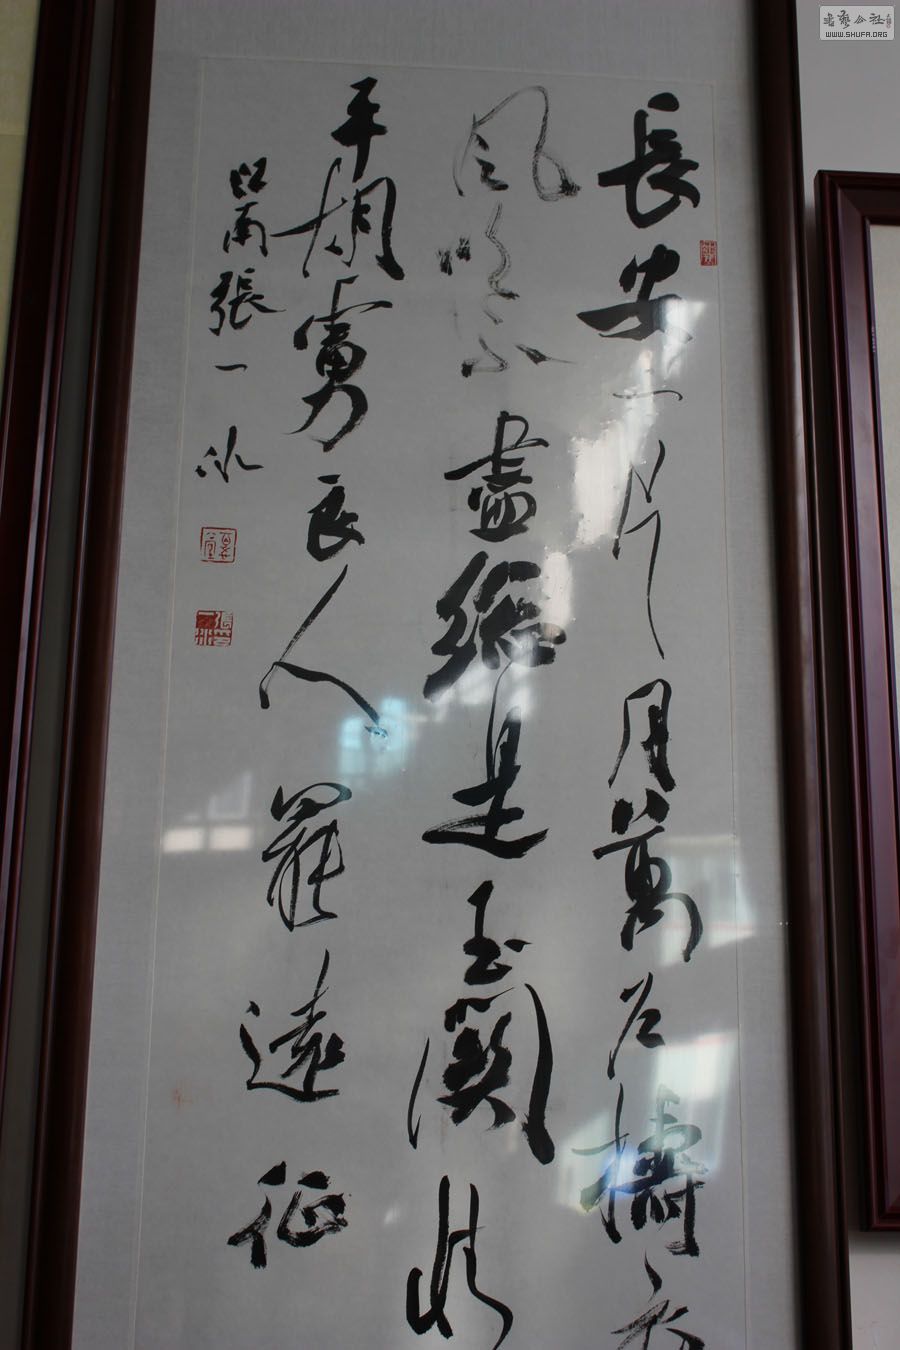 長安一片月萬戶擣衣
風吹不盡總是玉關情
平胡虜良人罷遠征
張一冰
書藝公社
WWW.SHUFA.ORG